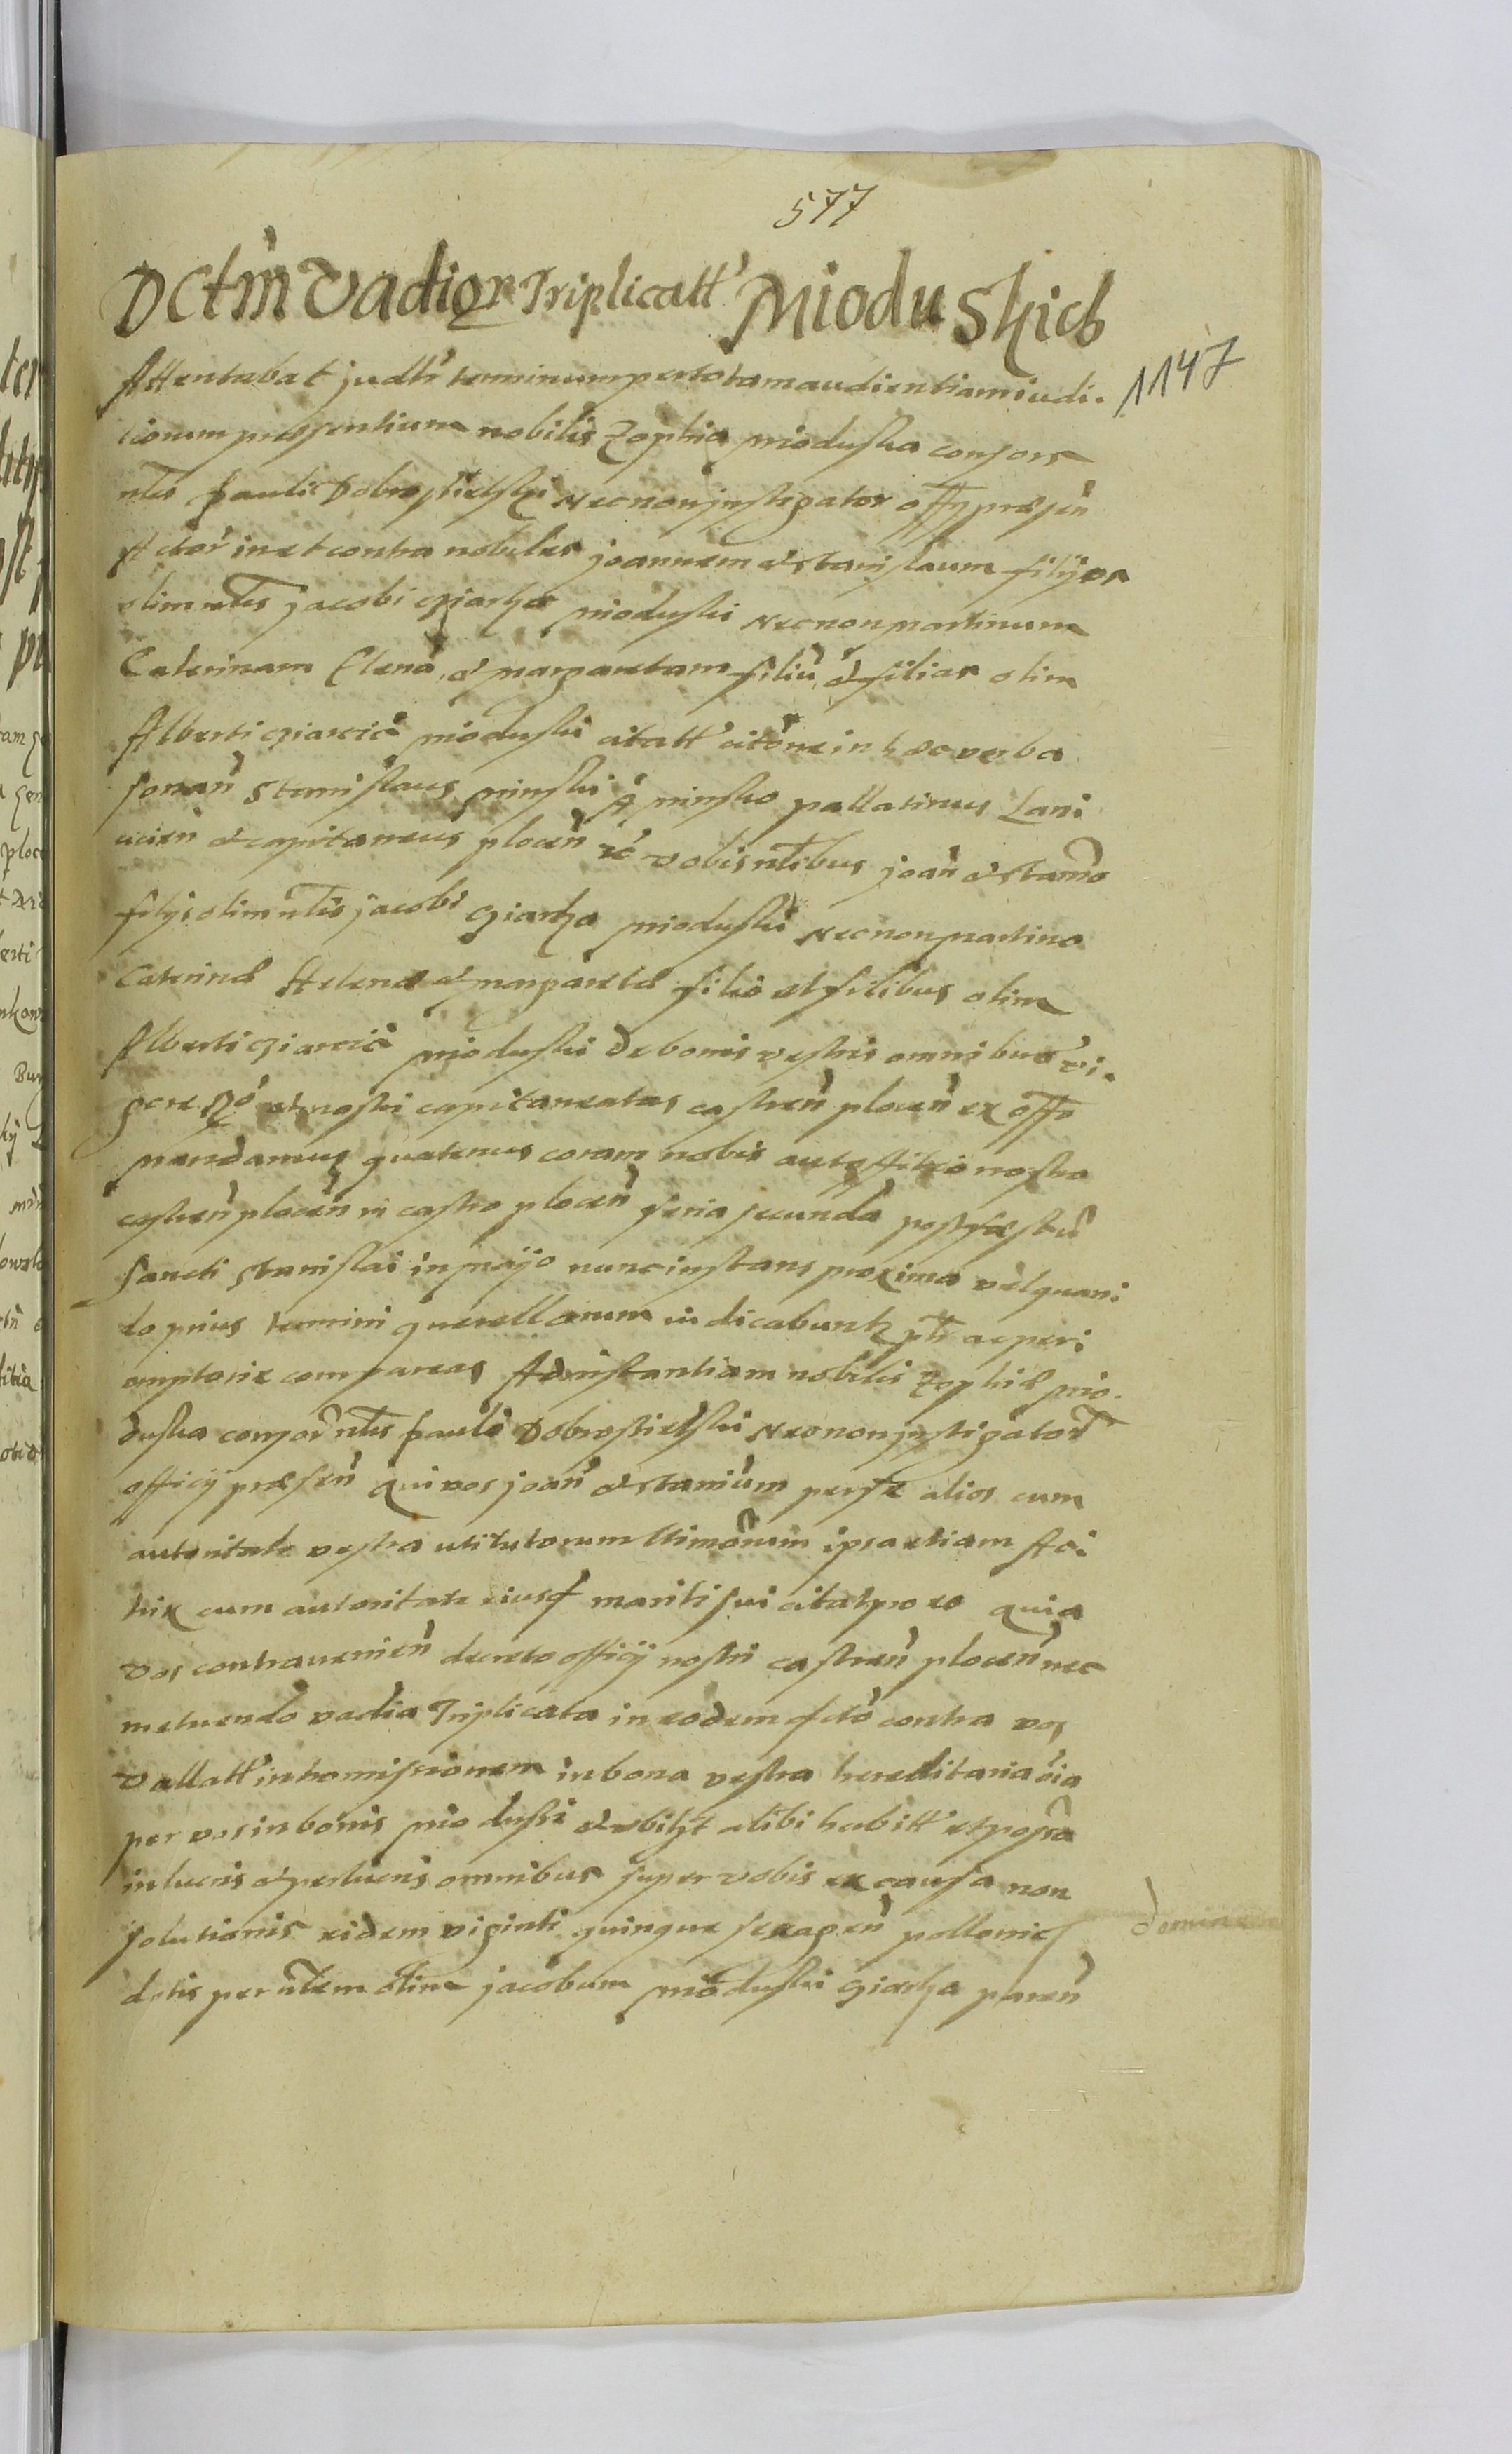 577
Dctm Vadior Triplicatt Mioduskich
1147
Attentabat judtr terminum per totam audientiam iudi.
ciorum presentium nobilis Zophia Mioduska consors
nlis Pauli Dobrosielski necnon justigator offy presen
Actor in et contra nobiles joannem et stanislaum filijos
olim nlis jacobi Mioduski necnon Martinum
Caterinam Elena et Margaretam filiu et filias olim
Alberti Mioduski citatt citone in haec verba
sonan Stanislaus Minski a Minsko pallatinus Lanci
cien et capitaneus plocen rc vobis nlibus joan et stanio
filijs olim nlis jacobi Mioduski necnon Martino
Caterinae Helenae et Margaretae filio et filibus olim
Alberti Mioduski de bonis vestris omnibus vi.
gore et nostri capitaneatus castren plocen ex offo
mandamus quatenus coram nobis aut officio nostro
castren plocen in castro plocen feria secunda post festu
sancti Stanislai in Maijo nunc instans proxima vel quan
do prius termini querellarum iudicabuntr ptr ac peri
emptorie compareas Ad instantiam nobilis Zophiae Mio.
duska consor nlis Pauli Dobrosielski necnon justigator
officij presen qui vos joan et stanium per se alios cum
autoritate vestra uti tutorum ltimorum ipsa etiam Ac
trix cum autoritate eiusd mariti sui citat pro eo quia
vos contravenien decreto officij nostri castren plocen nec
metuendo vadia Triplicata in eodem dcto contra vos
vallatt intromissionem in bona vestra hereditaria oia
per vos in bonis Mioduski et ubilzt alibi habitt et possa
in lucris et perlucris omnibus super vobis ex causa non
solutionis eidem viginti quinque sexagen pollonic
domin
dotis per nlem olim jacobum Mioduski paren